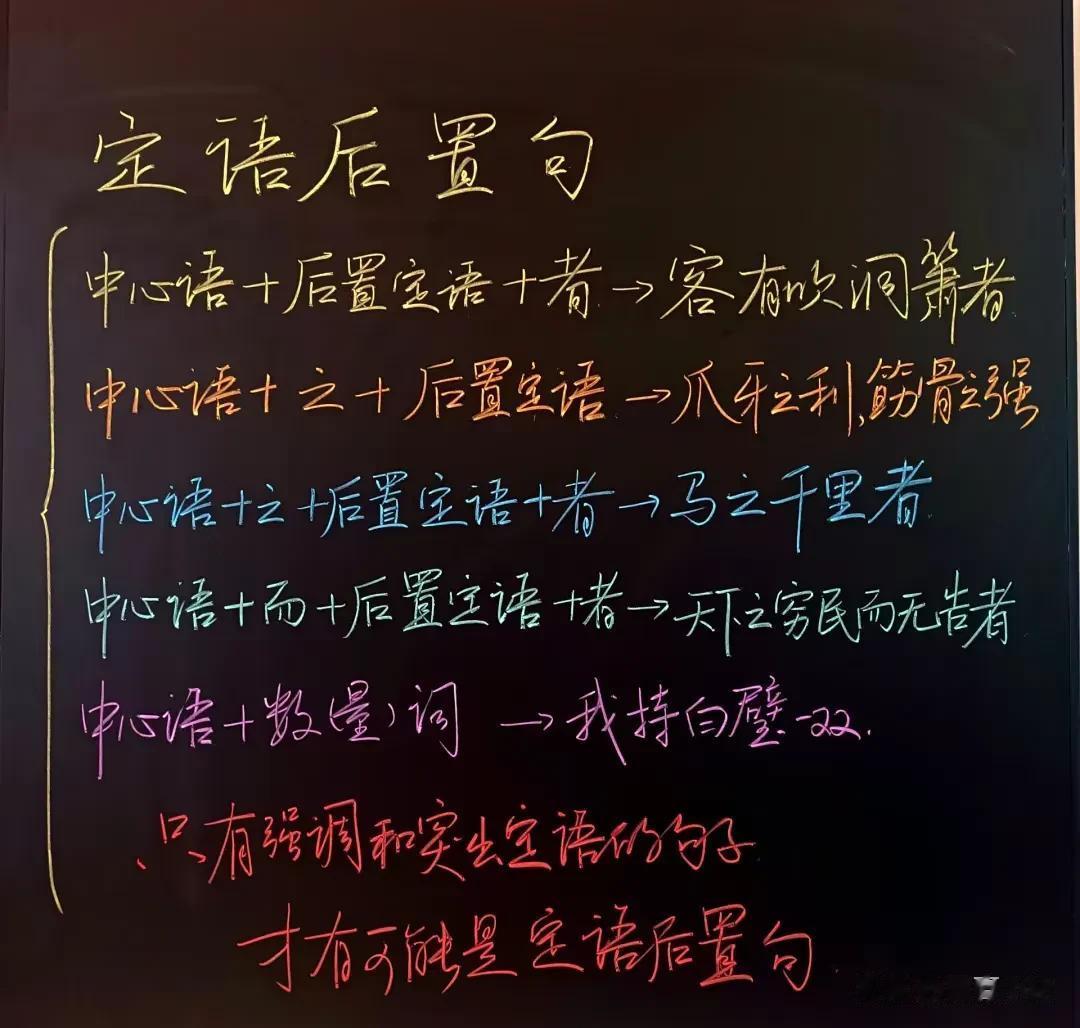 定语后置句
中心语+后置定语+者→客有吹洞箫者.
中心语+之+后置定语→爪牙之利,筋骨之强
中心语+之+后置定语+者→马之千里者.
中心语+而+后置定语+者→天下之穷民而无告者
中心语+数(量)词→我持白璧一双.
、只有强调和突出定语的句子.
才有可能是定语后置句.